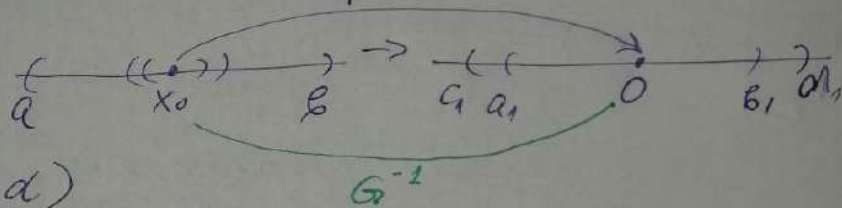 a x₀ b → c₁ a₁ 0 b₁ d₁
G⁻¹
d)